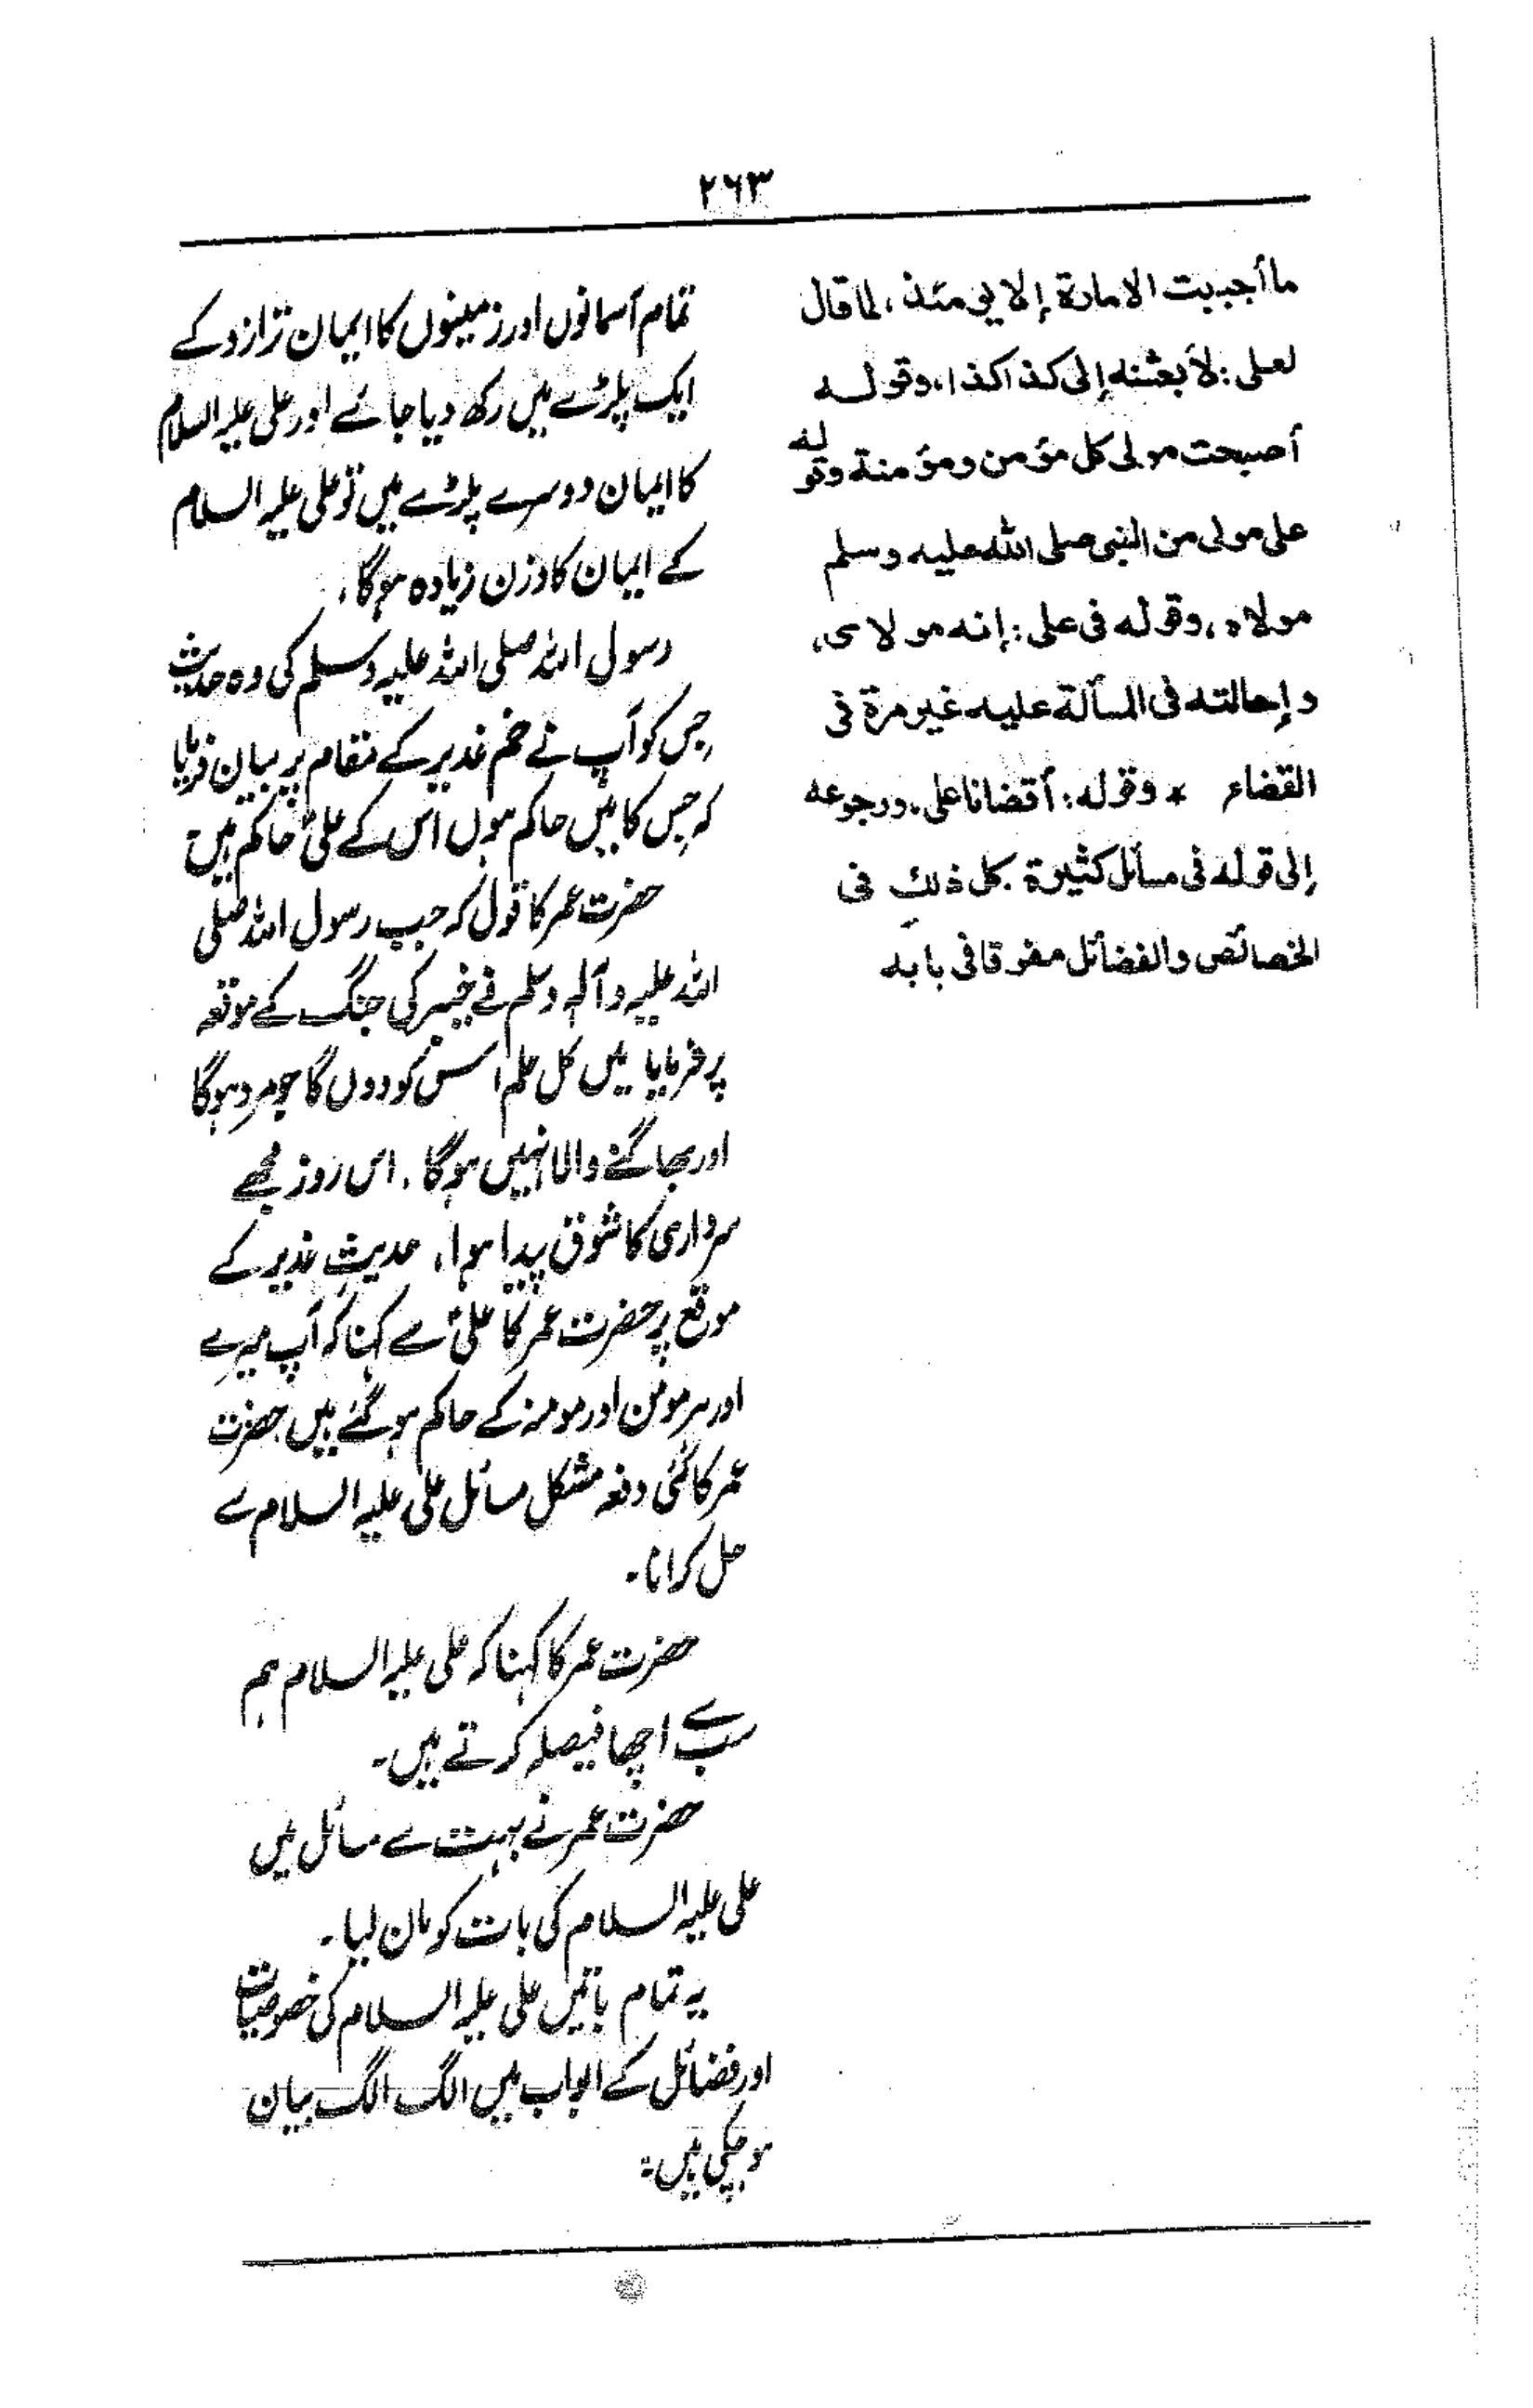 ۲۶۳
ما أجبيت الامارة إلا يومئذ، لما قال
لعلى: لأبعثنه إلى كذا كذا، وقوله
أصبحت مولى كل مؤمن ومؤمنة وقوله
على مولى من النبى صلى الله عليه وسلم
مولاه، وقوله فى على: إنه مولاى،
وإحالته فى المسألة عليه غير مرة فى
القضاء * وقوله: أقضانا على، ورجوعه
إلى قوله فى مسائل كثيرة. كل ذلك فى
الخصائص والفضائل مفرقا فى بابه
تمام آسمانوں اور زمینوں کا ایمان ترازو کے
ایک پلڑے میں رکھ دیا جائے اور علی علیہ السلام
کا ایمان دوسرے پلڑے میں تو علی علیہ السلام
کے ایمان کا وزن زیادہ ہوگا۔
رسول اللہ صلی اللہ علیہ وسلم کی وہ حدیث
جس کو آپ نے خم غدیر کے مقام پر بیان فرمایا
کہ جس کا میں حاکم ہوں اس کے علیؑ حاکم ہیں۔
حضرت عمر کا قول کہ جب رسول اللہ صلی
اللہ علیہ وآلہ وسلم نے خیبر کی جنگ کے موقعہ
پر فرمایا میں کل علم اس کو دوں گا جو مرد ہوگا
اور بھاگنے والا نہیں ہوگا۔ اس روز مجھے
سرداری کا شوق پیدا ہوا۔ حدیثِ غدیر کے
موقع پر حضرت عمر کا علیؑ سے کہنا کہ آپ میرے
اور ہر مومن اور مومنہ کے حاکم ہو گئے ہیں۔ حضرت
عمر کا کئی دفعہ مشکل مسائل علی علیہ السلام سے
حل کرانا۔
حضرت عمر کا کہنا کہ علی علیہ السلام ہم
سب سے اچھا فیصلہ کرتے ہیں۔
حضرت عمر نے بہت سے مسائل میں
علی علیہ السلام کی بات کو مان لیا۔
یہ تمام باتیں علی علیہ السلام کی خصوصیات
اور فضائل کے ابواب میں الگ الگ بیان
ہو چکی ہیں۔